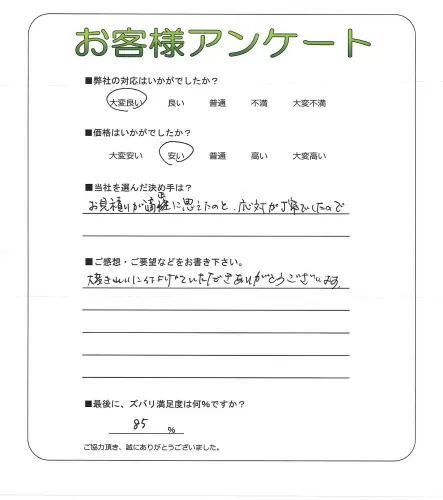 お客様アンケート
■弊社の対応はいかがでしたか?
大変良い 良い 普通 不満 大変不満
■価格はいかがでしたか?
大変安い 安い 普通 高い 大変高い
■当社を選んだ決め手は?
お見積りが適確に思えたのと、応対が丁寧でしたので
■ご感想・ご要望などをお書き下さい。
大変きれいに仕上げていただきありがとうございます。
■最後に、ズバリ満足度は何%ですか?
85 %
ご協力頂き、誠にありがとうございました。